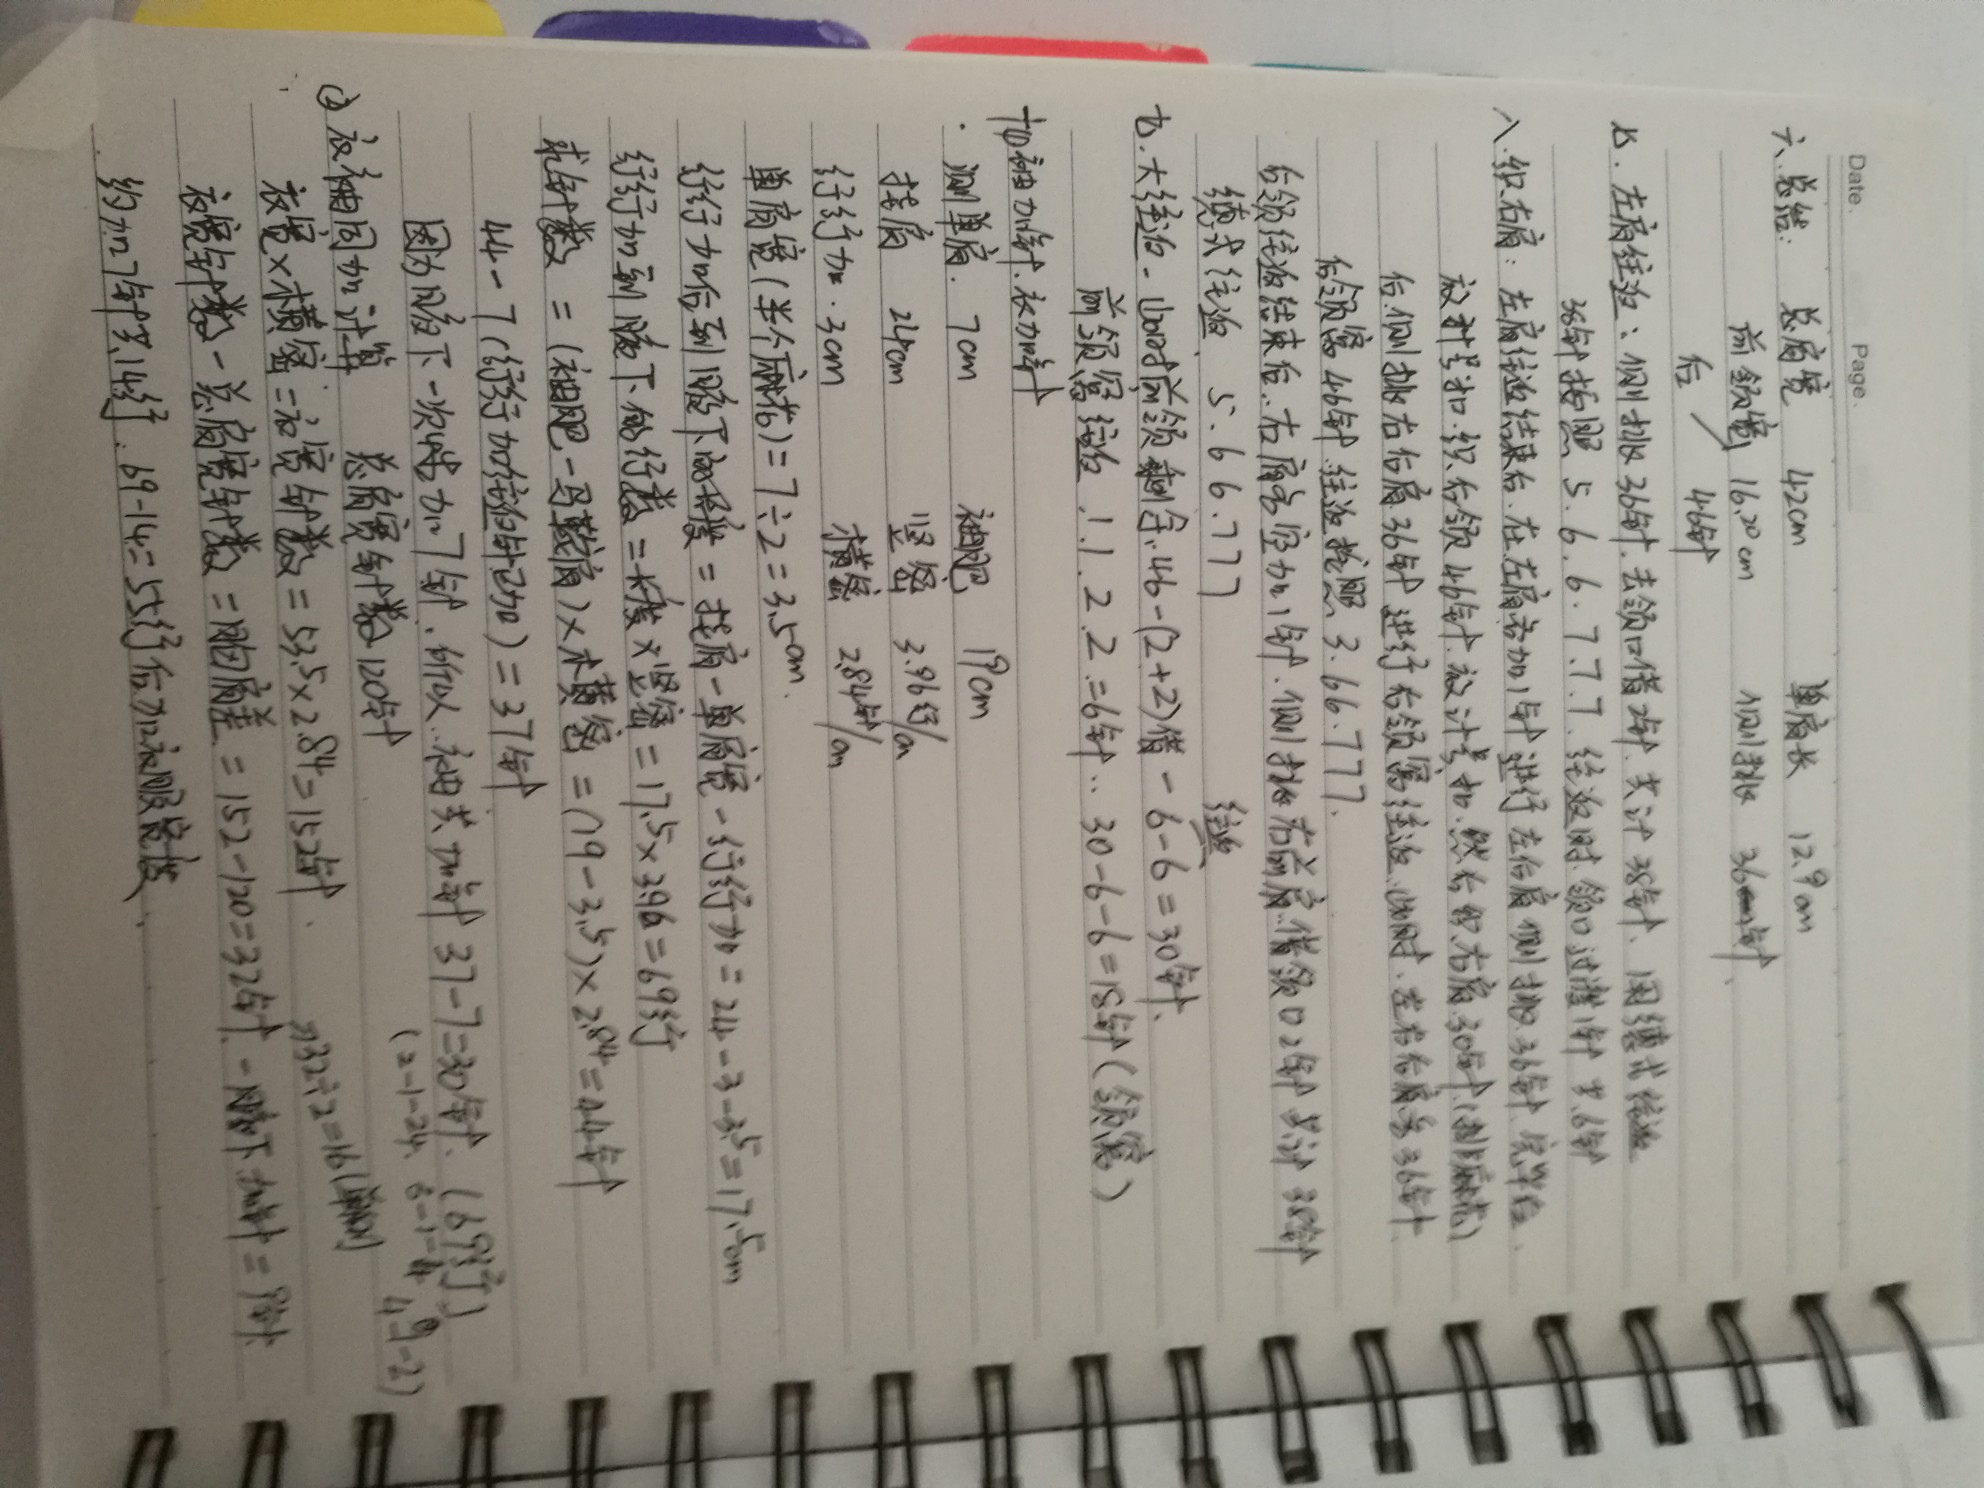 Date.
Page.
六、总结： 总肩宽 42cm 单肩长 12.9cm
前领宽 16.20cm 侧挑 36针
后 46针
七、左肩往返：侧挑36针.去领口借2针.共计38针、用德式往返
36针按照 5.6.6.7.7.7.往返时.领口过渡1针 共6针
八、织右肩：左肩往返结束后.在左肩旁加1针进行左后肩侧挑36针.完毕后.
放计号扣.织后领46针.放计号扣.然后织右肩30针(
后.侧挑右后肩36针进行后领窝往返.此时.左右后肩各36针
后领窝46针.往返按照3.66.777.
后领往返结束后.右肩旁空加1针.侧挑右前肩.借领口2针 共计38针
德式往返 5.6 6.777 往返
九.大往返-此时前领剩余.46-(2+2)借-6-6=30针.
前领窝往返 .1.1.2.2.=6针..30-6-6=18针(领窝)
加袖加针.衣加针
测单肩. 7cm 袖肥 19cm
挂肩 24cm 竖密 3.96行/cm
行行加.3cm 横密 2.84针/cm
单肩宽(半个麻花)=7÷2=3.5cm.
行行加后到腋下的长度=挂肩-单肩宽-行行加=24-3-3.5=17.5cm
行行加到腋下的行数=长度×竖密=17.5×3.96=69行
求针数=(袖肥-马鞍肩)×横密=(19-3.5)×2.84=44针
44-7(行行加往返针已加)=37针
因为腋下一次性加7针.所以.袖共加针37-7=30针.(69行)
(2-1-24 6-1-4 4-1-2)
② 衣身袖同加计算 总肩宽针数120针
衣宽×横密=衣宽针数=53.5×2.84=152针. 32÷2=16(单侧)
衣宽针数-总肩宽针数=胸肩差=152-120=32针-腋下加针=9针
约加7针需14行.69-14=55行后加衣服宽度.